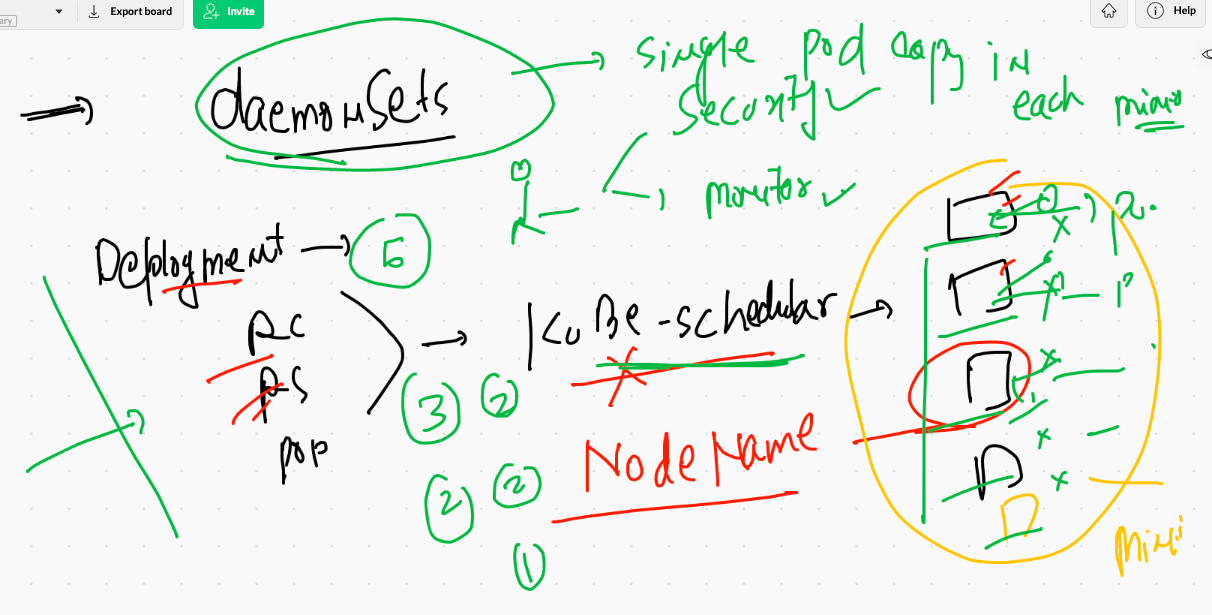 ary
Export board
Invite
Help
daemonSets
single pod copy in
each
Security
monitor
Deployment
5
RC
RS
POD
Kube-schedular
3
2
NodeName
2
2
1